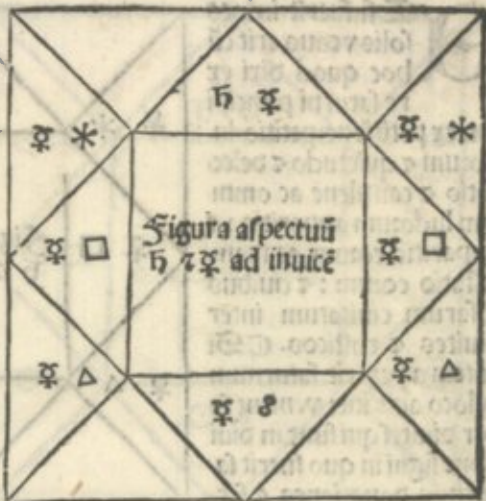 ♄ ☿
☿ ⚹
☿ ⚹
☿ □
Figura aſpectuū
♄ ⁊ ☿ ad inuicē
☿ □
☿ △
☿ △
☿ ☍